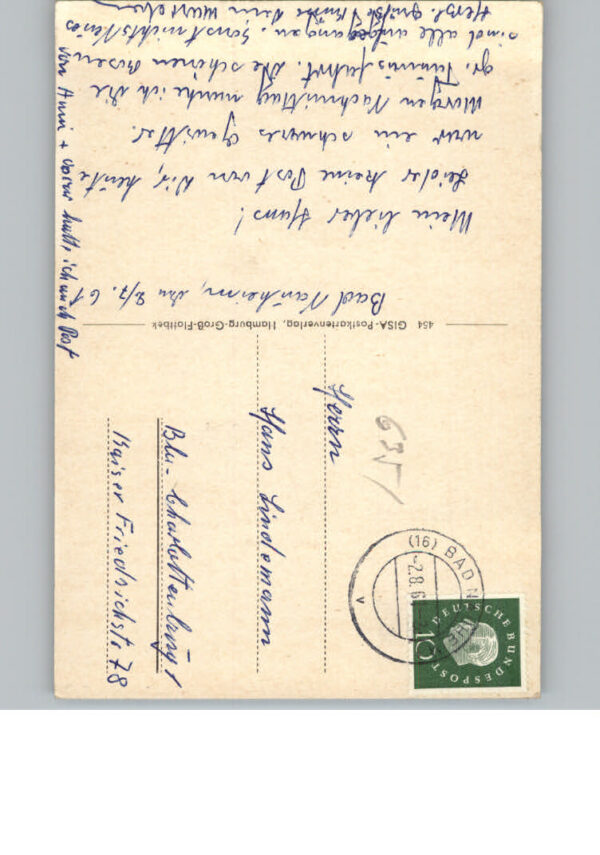 Bad Nauheim, den 2/8. 61
Mein lieber Hans!
Leider keine Post von Dir, heute
war ein schweres Gewitter.
Morgen Nachmittag mache ich die
gr. Taunusfahrt. Die schönen Rosen
sind alle aufgegangen. Sonst nichts Neues
Herzl. Grüße + Küsse Dein
von Anni + hatte ich auch Post
454 GISA-Postkartenverlag, Hamburg-Groß-Flottbek
Herrn
Hans Lindemann
Bln-Charlottenburg 1
Kaiser Friedrichstr. 78
(16) BAD N
-2.8.6
A
DEUTSCHE BUNDESPOST
10